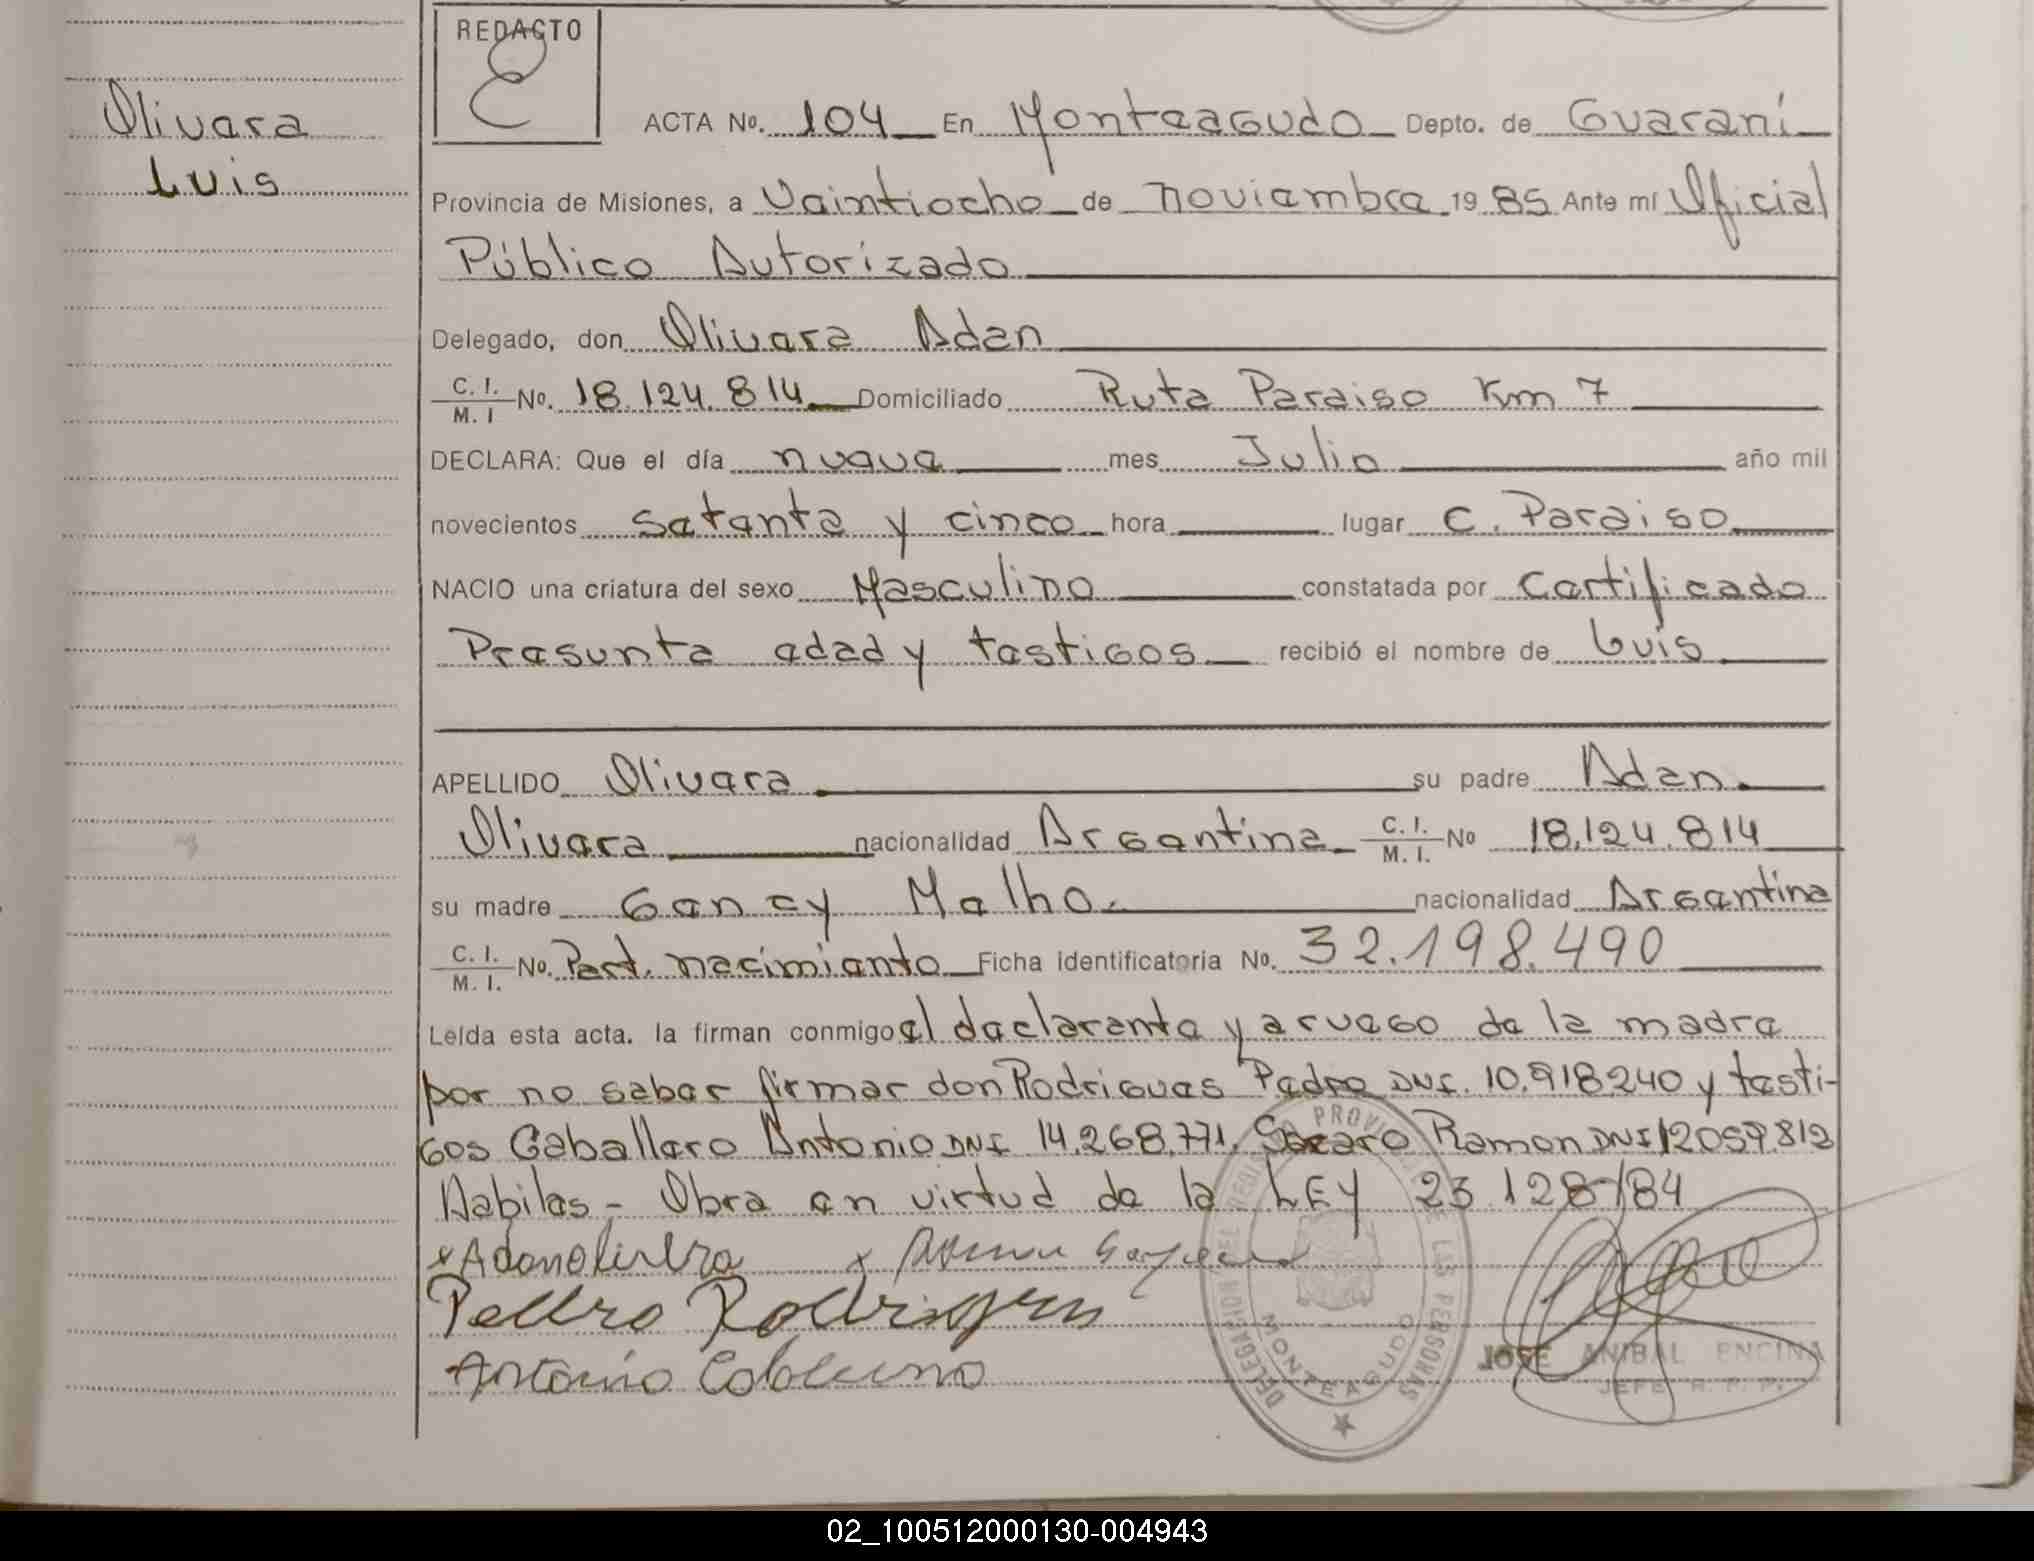 REDACTO
E
Olivera
Luis
ACTA No. 104 En Monteagudo Depto. de Guaraní
Provincia de Misiones, a Veintiocho de noviembre 1985 Ante mí Oficial
Público Autorizado
Delegado, don Olivera Adan
C. I. / M. I No. 18.124.814 Domiciliado Ruta Paraiso Km 7
DECLARA: Que el día nueve mes Julio año mil
novecientos setenta y cinco hora lugar C. Paraiso
NACIO una criatura del sexo Masculino constatada por Certificado
Presunta edad y testigos recibió el nombre de Luis
APELLIDO Olivera su padre Adan
Olivera nacionalidad Argentina C. I. / M. I. No 18.124.814
su madre Gency Melho. nacionalidad Argentina
C. I. / M. I. No. Part. nacimiento Ficha identificatoria No. 32.198.490
Leída esta acta. la firman conmigo el declarante y a ruego de la madre
por no saber firmar don Rodrigues Pedro DNI. 10.918240 y testi-
gos Caballero Antonio DNI 14.268.771. Ramon DNI 12059.812
Habiles - Obra en virtud de la LEY 23.128/84
x Adan olivera x
Pedro Rodrigues
Antonio
DELEGACION DEL REGISTRO PROVINCIAL DE LAS PERSONAS
MONTEAGUDO
JOSE ANIBAL ENCINA
JEFE R. P. P.
02_100512000130-004943